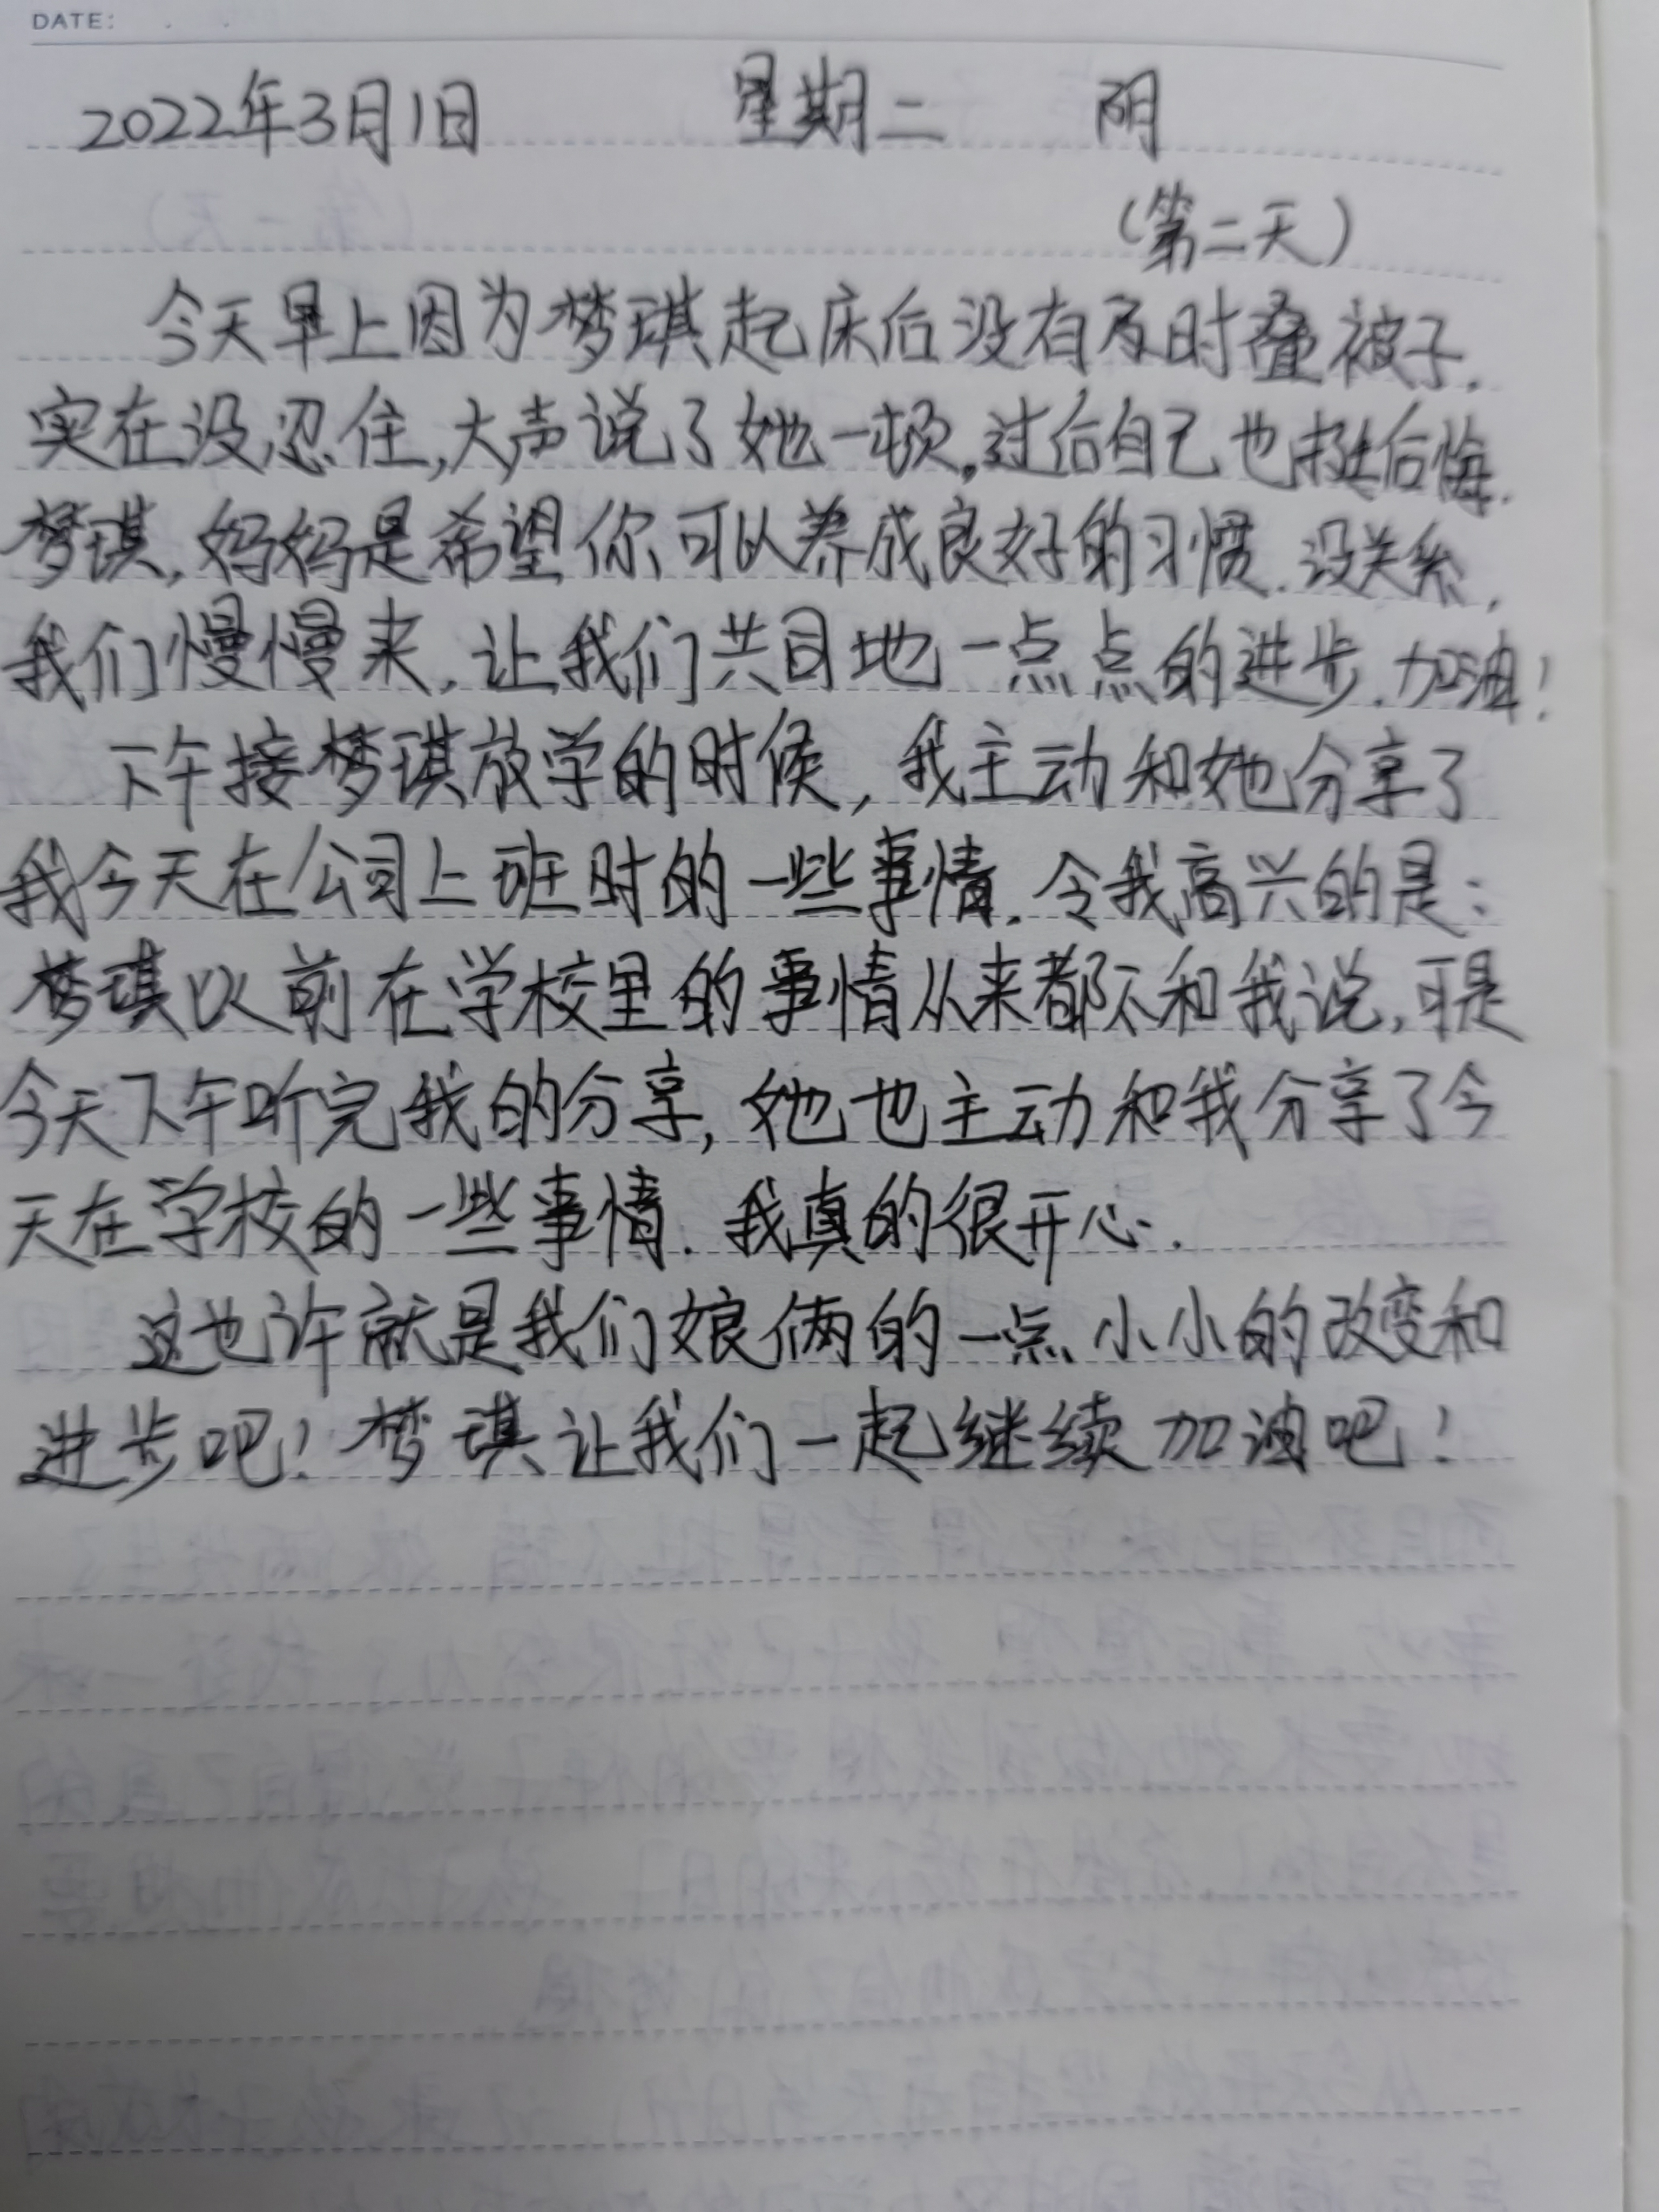 DATE: . .
2022年3月1日 星期二 阴
(第二天)
今天早上因为梦琪起床后没有及时叠被子.
实在没忍住,大声说了她一顿。过后自己也挺后悔.
梦琪,妈妈是希望你可以养成良好的习惯.没关系,
我们慢慢来,让我们共同地一点点的进步.加油!
下午接梦琪放学的时候,我主动和她分享了
我今天在公司上班时的一些事情.令我高兴的是:
梦琪以前在学校里的事情从来都不和我说,可是
今天下午听完我的分享,她也主动和我分享了今
天在学校的一些事情.我真的很开心.
这也许就是我们娘俩的一点小小的改变和
进步吧!梦琪让我们一起继续加油吧!